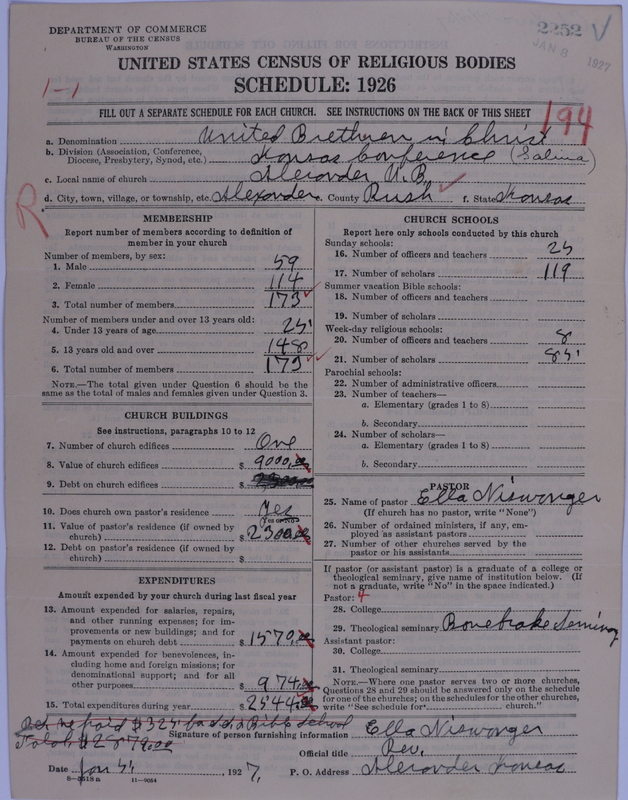 DEPARTMENT OF COMMERCE
BUREAU OF THE CENSUS
WASHINGTON
2252
JAN 8 1927
UNITED STATES CENSUS OF RELIGIOUS BODIES
SCHEDULE: 1926
1-1
FILL OUT A SEPARATE SCHEDULE FOR EACH CHURCH. SEE INSTRUCTIONS ON THE BACK OF THIS SHEET
194
a. Denomination United Brethren in Christ
b. Division (Association, Conference, Diocese, Presbytery, Synod, etc.) Kansas Conference (Salina)
c. Local name of church Alexander U.B.
d. City, town, village, or township, etc. Alexander e. County Rush f. State Kansas
R
MEMBERSHIP
Report number of members according to definition of
member in your church
Number of members, by sex:
1. Male 59
2. Female 114
3. Total number of members 173
Number of members under and over 13 years old:
4. Under 13 years of age 25
5. 13 years old and over 148
6. Total number of members 173
NOTE.—The total given under Question 6 should be
same as the total of males and females given under Question 3.
CHURCH BUILDINGS
See instructions, paragraphs 10 to 12
7. Number of church edifices One
8. Value of church edifices $ 9000.00
9. Debt on church edifices $
10. Does church own pastor's residence? Yes
(Yes or No)
11. Value of pastor's residence (if owned by
church) $ 2300.00
12. Debt on pastor's residence (if owned by
church) $
EXPENDITURES
Amount expended by your church during last fiscal year
13. Amount expended for salaries, repairs,
and other running expenses; for im-
provements or new buildings; and for
payments on church debt $ 1570.00
14. Amount expended for benevolences, in-
cluding home and foreign missions; for
denominational support; and for all
other purposes $ 974.00
15. Total expenditures during year $ 2544.00
CHURCH SCHOOLS
Report here only schools conducted by this church
Sunday schools:
16. Number of officers and teachers 25
17. Number of scholars 119
Summer vacation Bible schools:
18. Number of officers and teachers
19. Number of scholars
Week-day religious schools:
20. Number of officers and teachers 8
21. Number of scholars 85
Parochial schools:
22. Number of administrative officers
23. Number of teachers—
a. Elementary (grades 1 to 8)
b. Secondary
24. Number of scholars—
a. Elementary (grades 1 to 8)
b. Secondary
PASTOR
25. Name of pastor Ella Niswonger
(If church has no pastor, write "None")
26. Number of ordained ministers, if any, em-
ployed as assistant pastors
27. Number of other churches served by the
pastor or his assistants
If pastor (or assistant pastor) is a graduate of a college or
theological seminary, give name of institution below. (If
not a graduate, write "No" in the space indicated.)
Pastor: 4
28. College
29. Theological seminary Bonebrake Seminary
Assistant pastor:
30. College
31. Theological seminary
NOTE.—Where one pastor serves two or more churches,
Questions 28 and 29 should be answered only on the schedule
for one of the churches; on the schedules for other churches,
write "See schedule for church."
paid $325 Bible School
Total $2879.00
Signature of person furnishing information Ella Niswonger
Official title Rev.
Date Jan , 1927. P. O. Address Alexander Kansas
8-3518a 11-9064